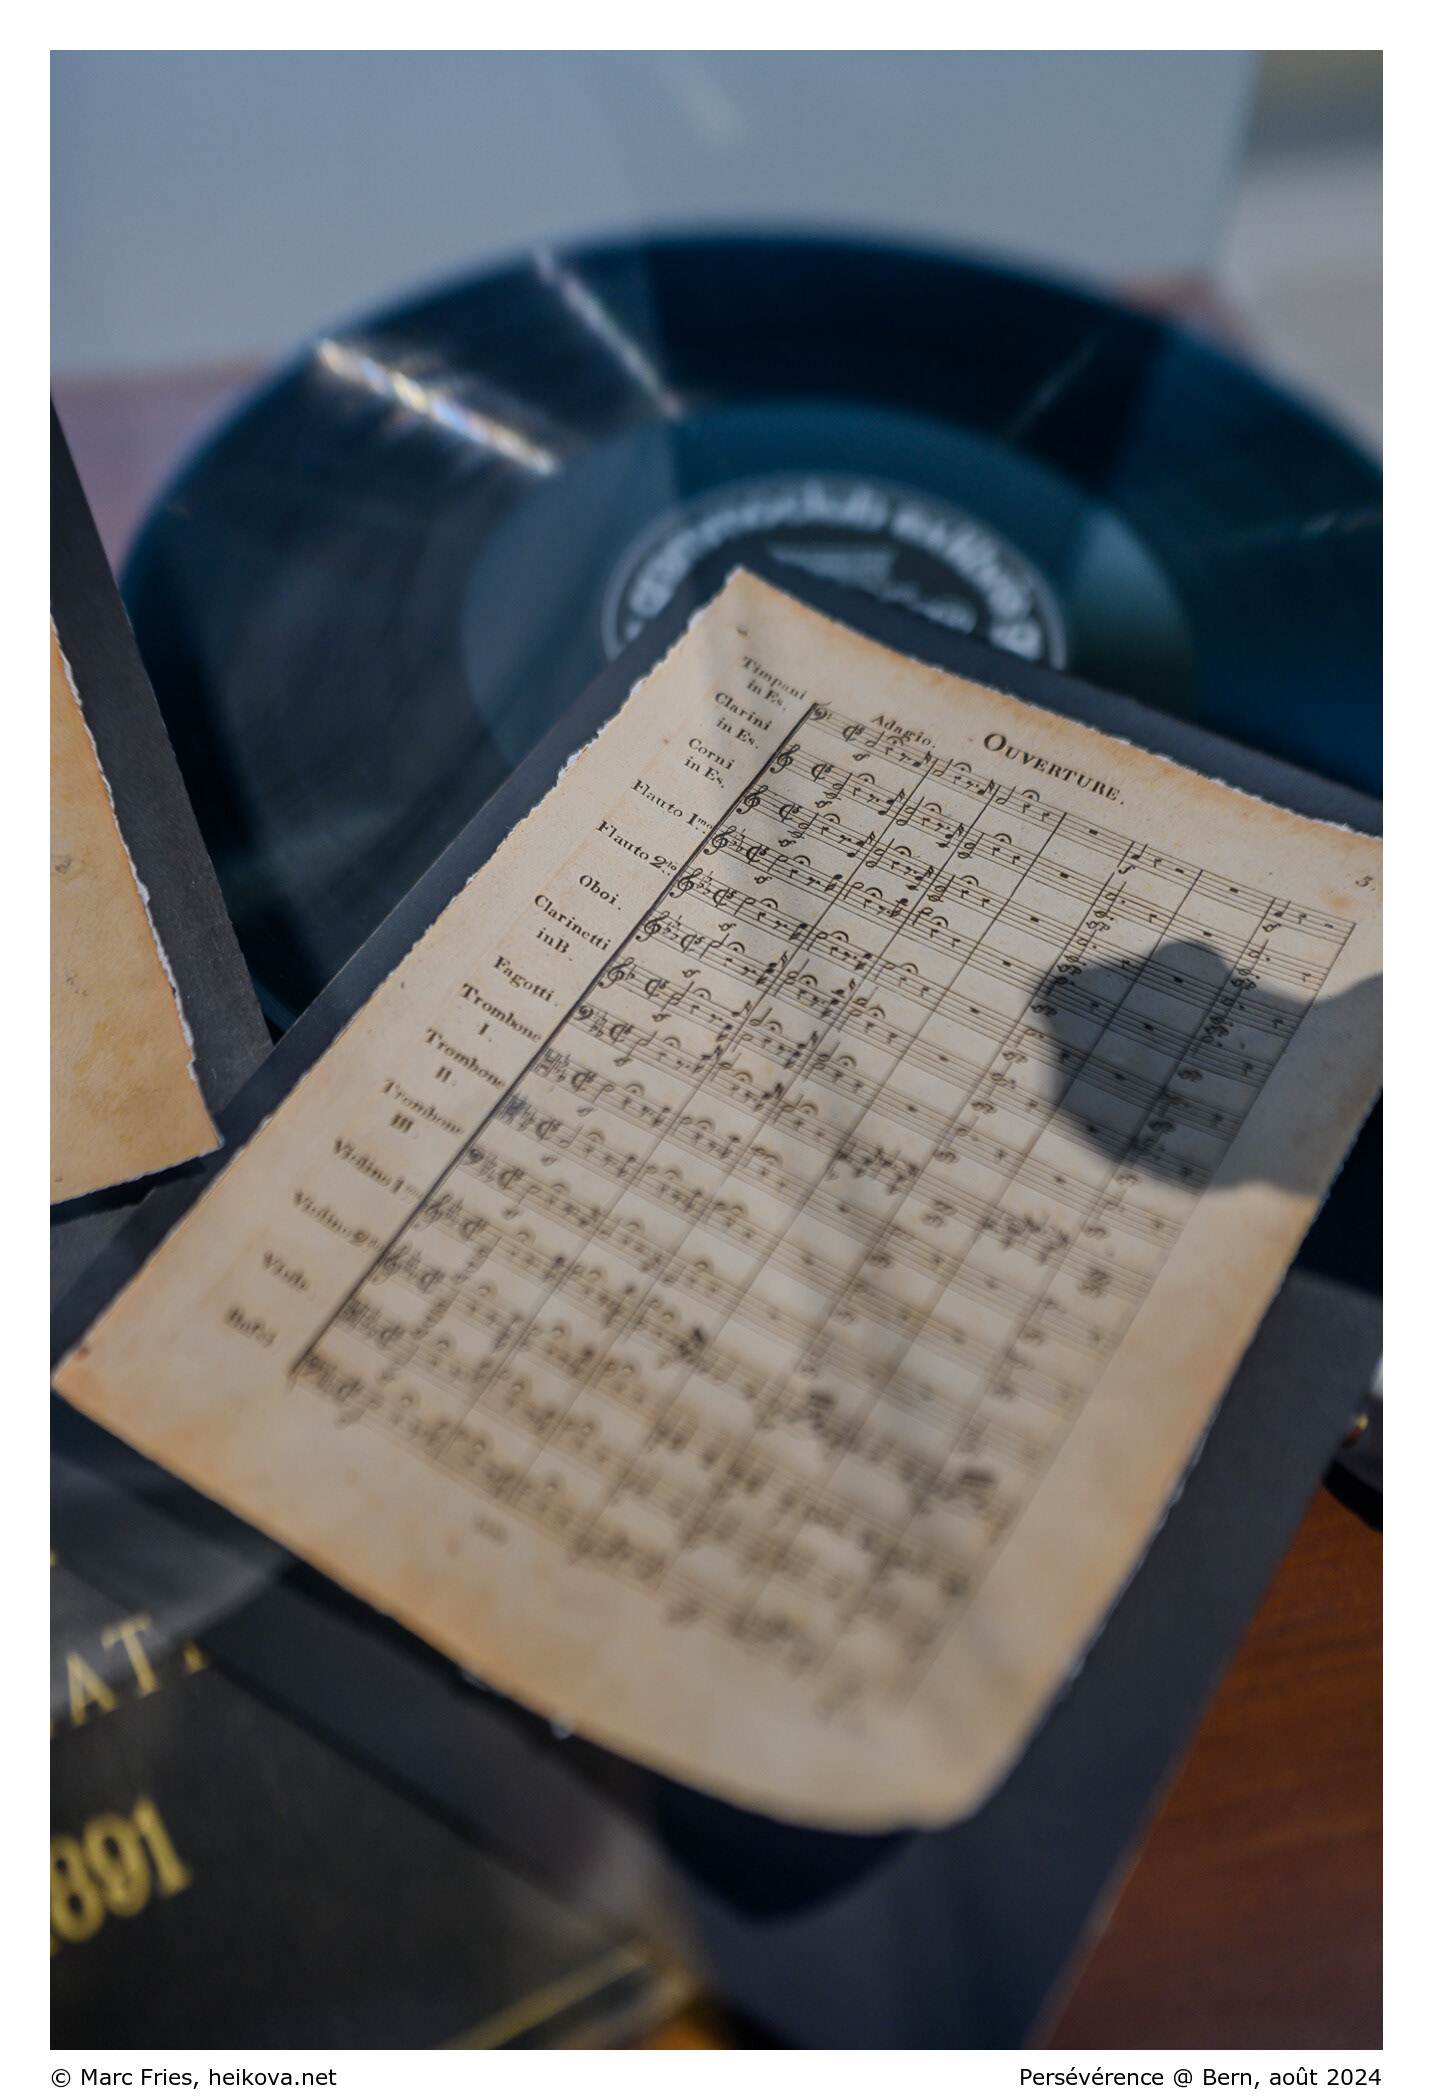 Ouverture.
Adagio.
5.
Timpani
in Es.
Clarini
in Es.
Corni
in Es.
Flauto 1mo
Flauto 2do
Oboi.
Clarinetti
in B.
Fagotti.
Trombone
I.
Trombone
II.
Trombone
III.
Violino 1mo
Violino 2do
Viola.
Bassi
891
© Marc Fries, heikova.net
Persévérence @ Bern, août 2024